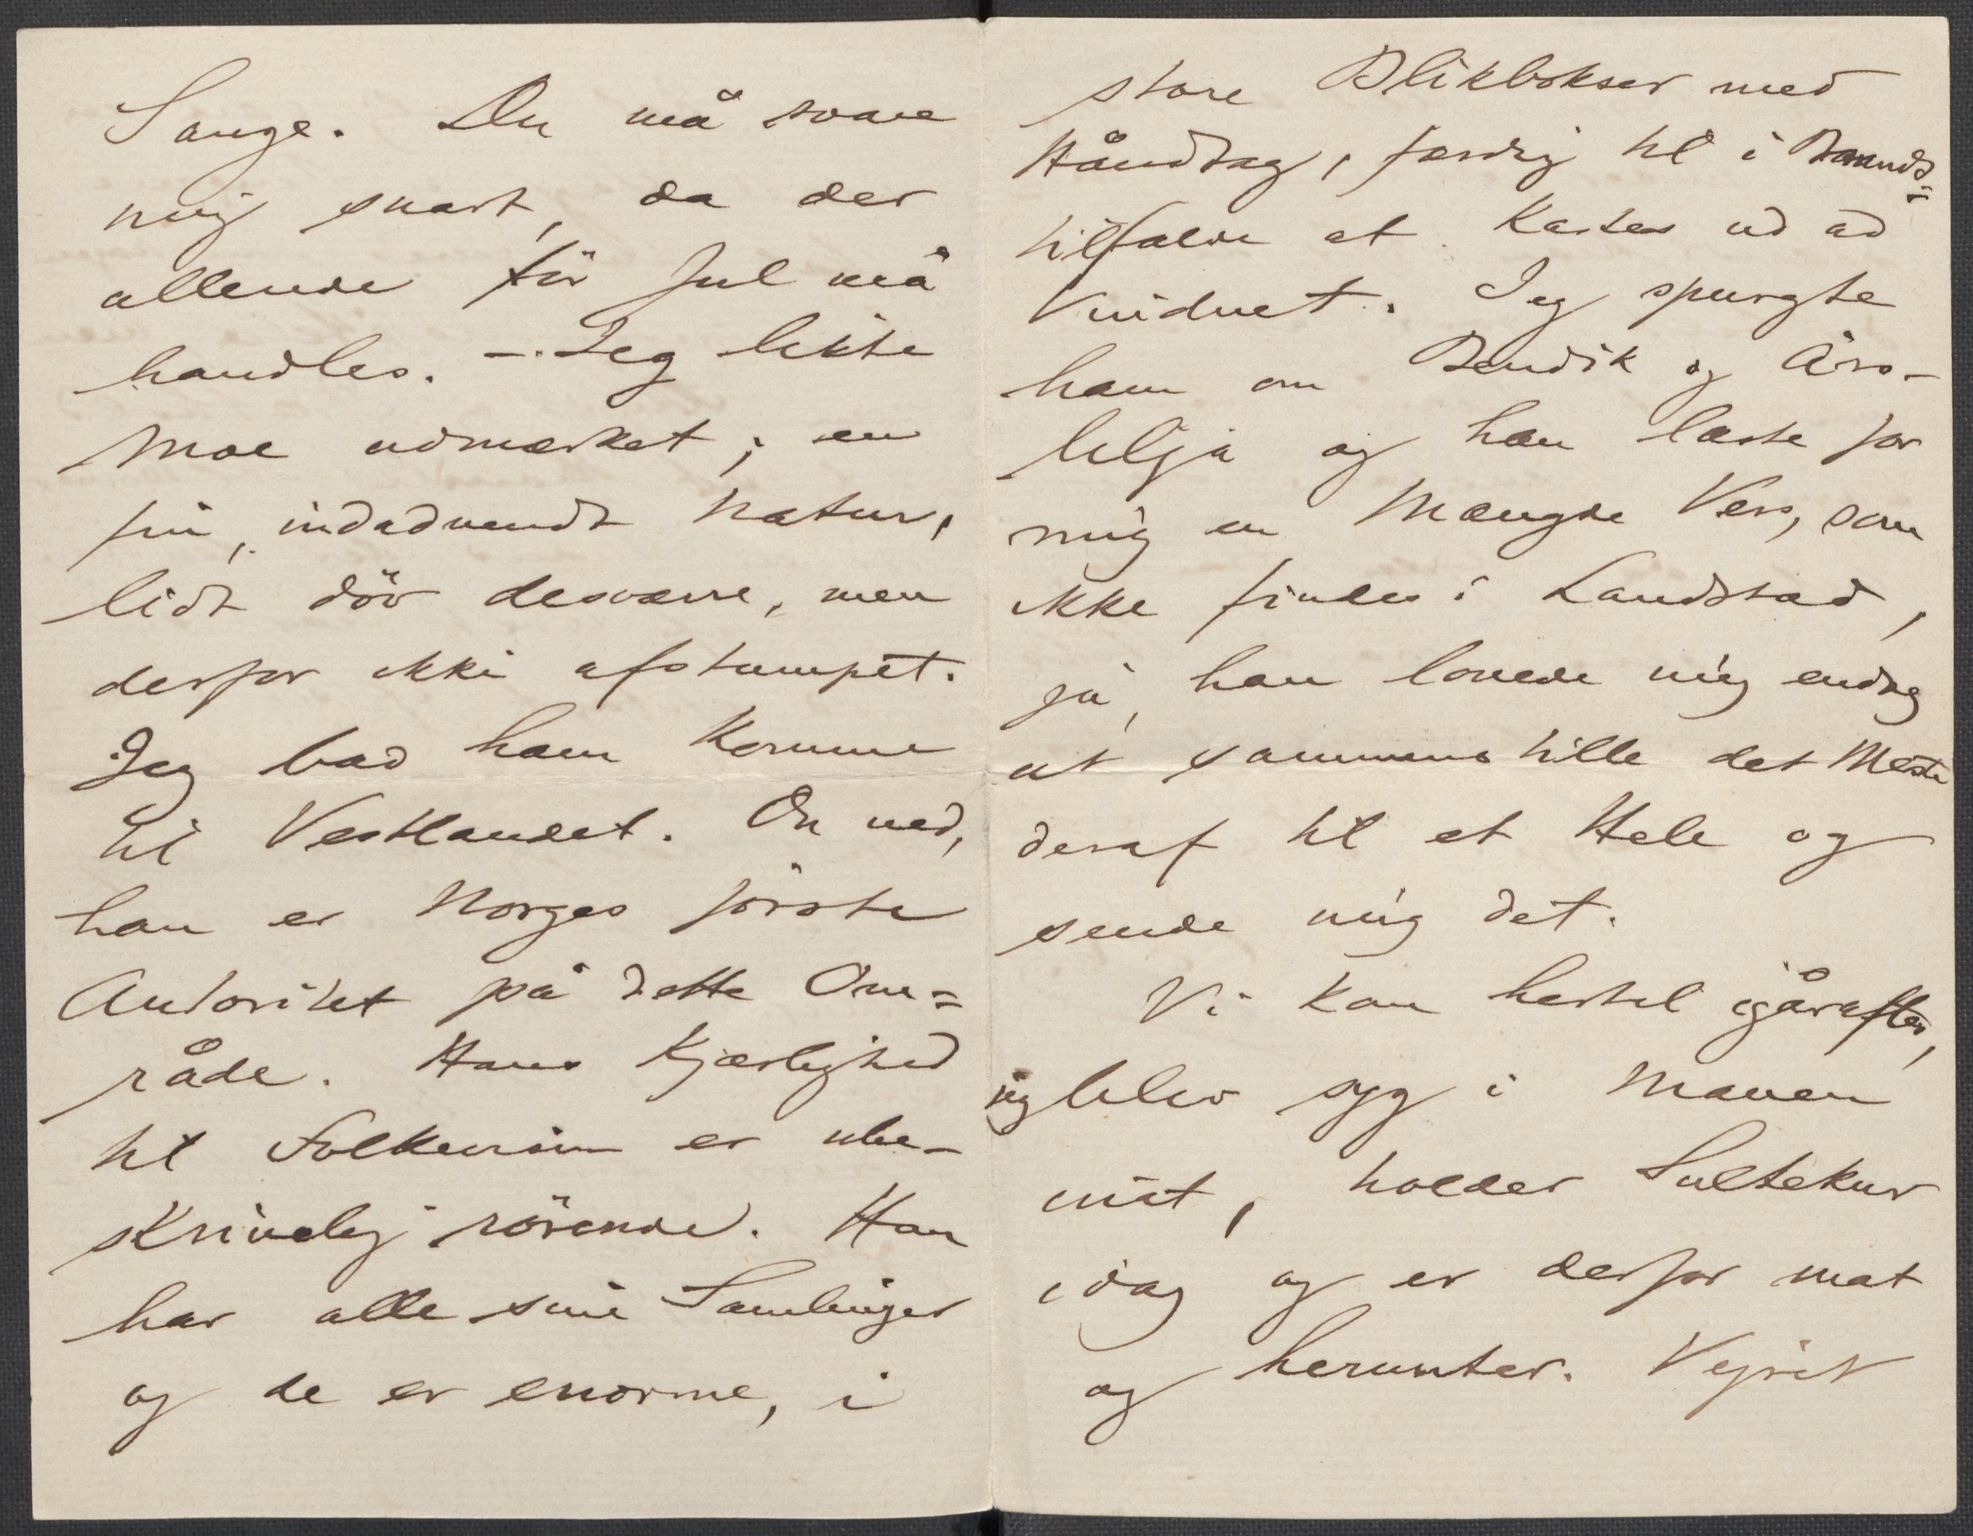 Sange. Du må svare
mig snart, da der
allerede för Jul må
handles. – Jeg likte
Moe udmærket; en
fin, indadvendt Natur,
lidt döv desværre, men
derfor ikke afstumpet.
Jeg bad ham komme
til Vestlandet. Du ved,
han er Norges förste
Autoritet på dette Om=
råde. Hans Kjærlighed
til Folkeviser er ube-
skrivelig rörende. Han
har alle sine Samlinger
og de er enorme, i
store Blikbokser med
Håndtag, færdig til i Brands=
tilfælde at kastes ud ad
Vinduet. Jeg spurgte
ham om Bendik og Åro-
lilja og han læste for
mig en Mængde Vers, som
ikke findes i Landstad,
ja, han lovede mig endog
at sammenstille det Meste
deraf til et Hele og
sende mig det.
Vi kom hertil igåraftes,
jeg blev syg i Maven
inat, holder Sultekur
idag og er derfor mat
og herunter. Vejret